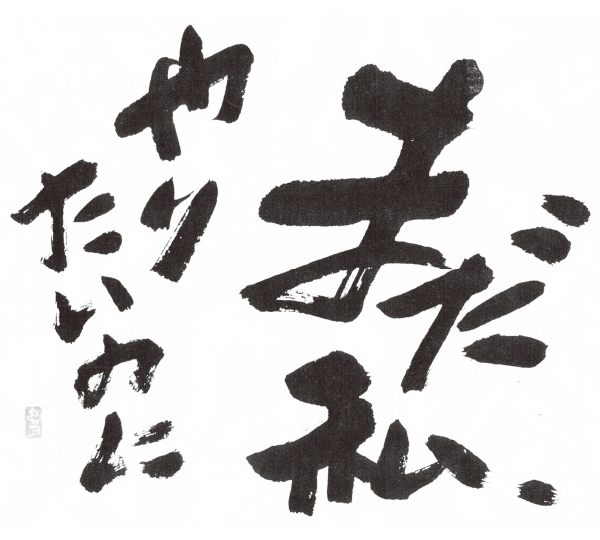 まだ私、
やり
たいのに